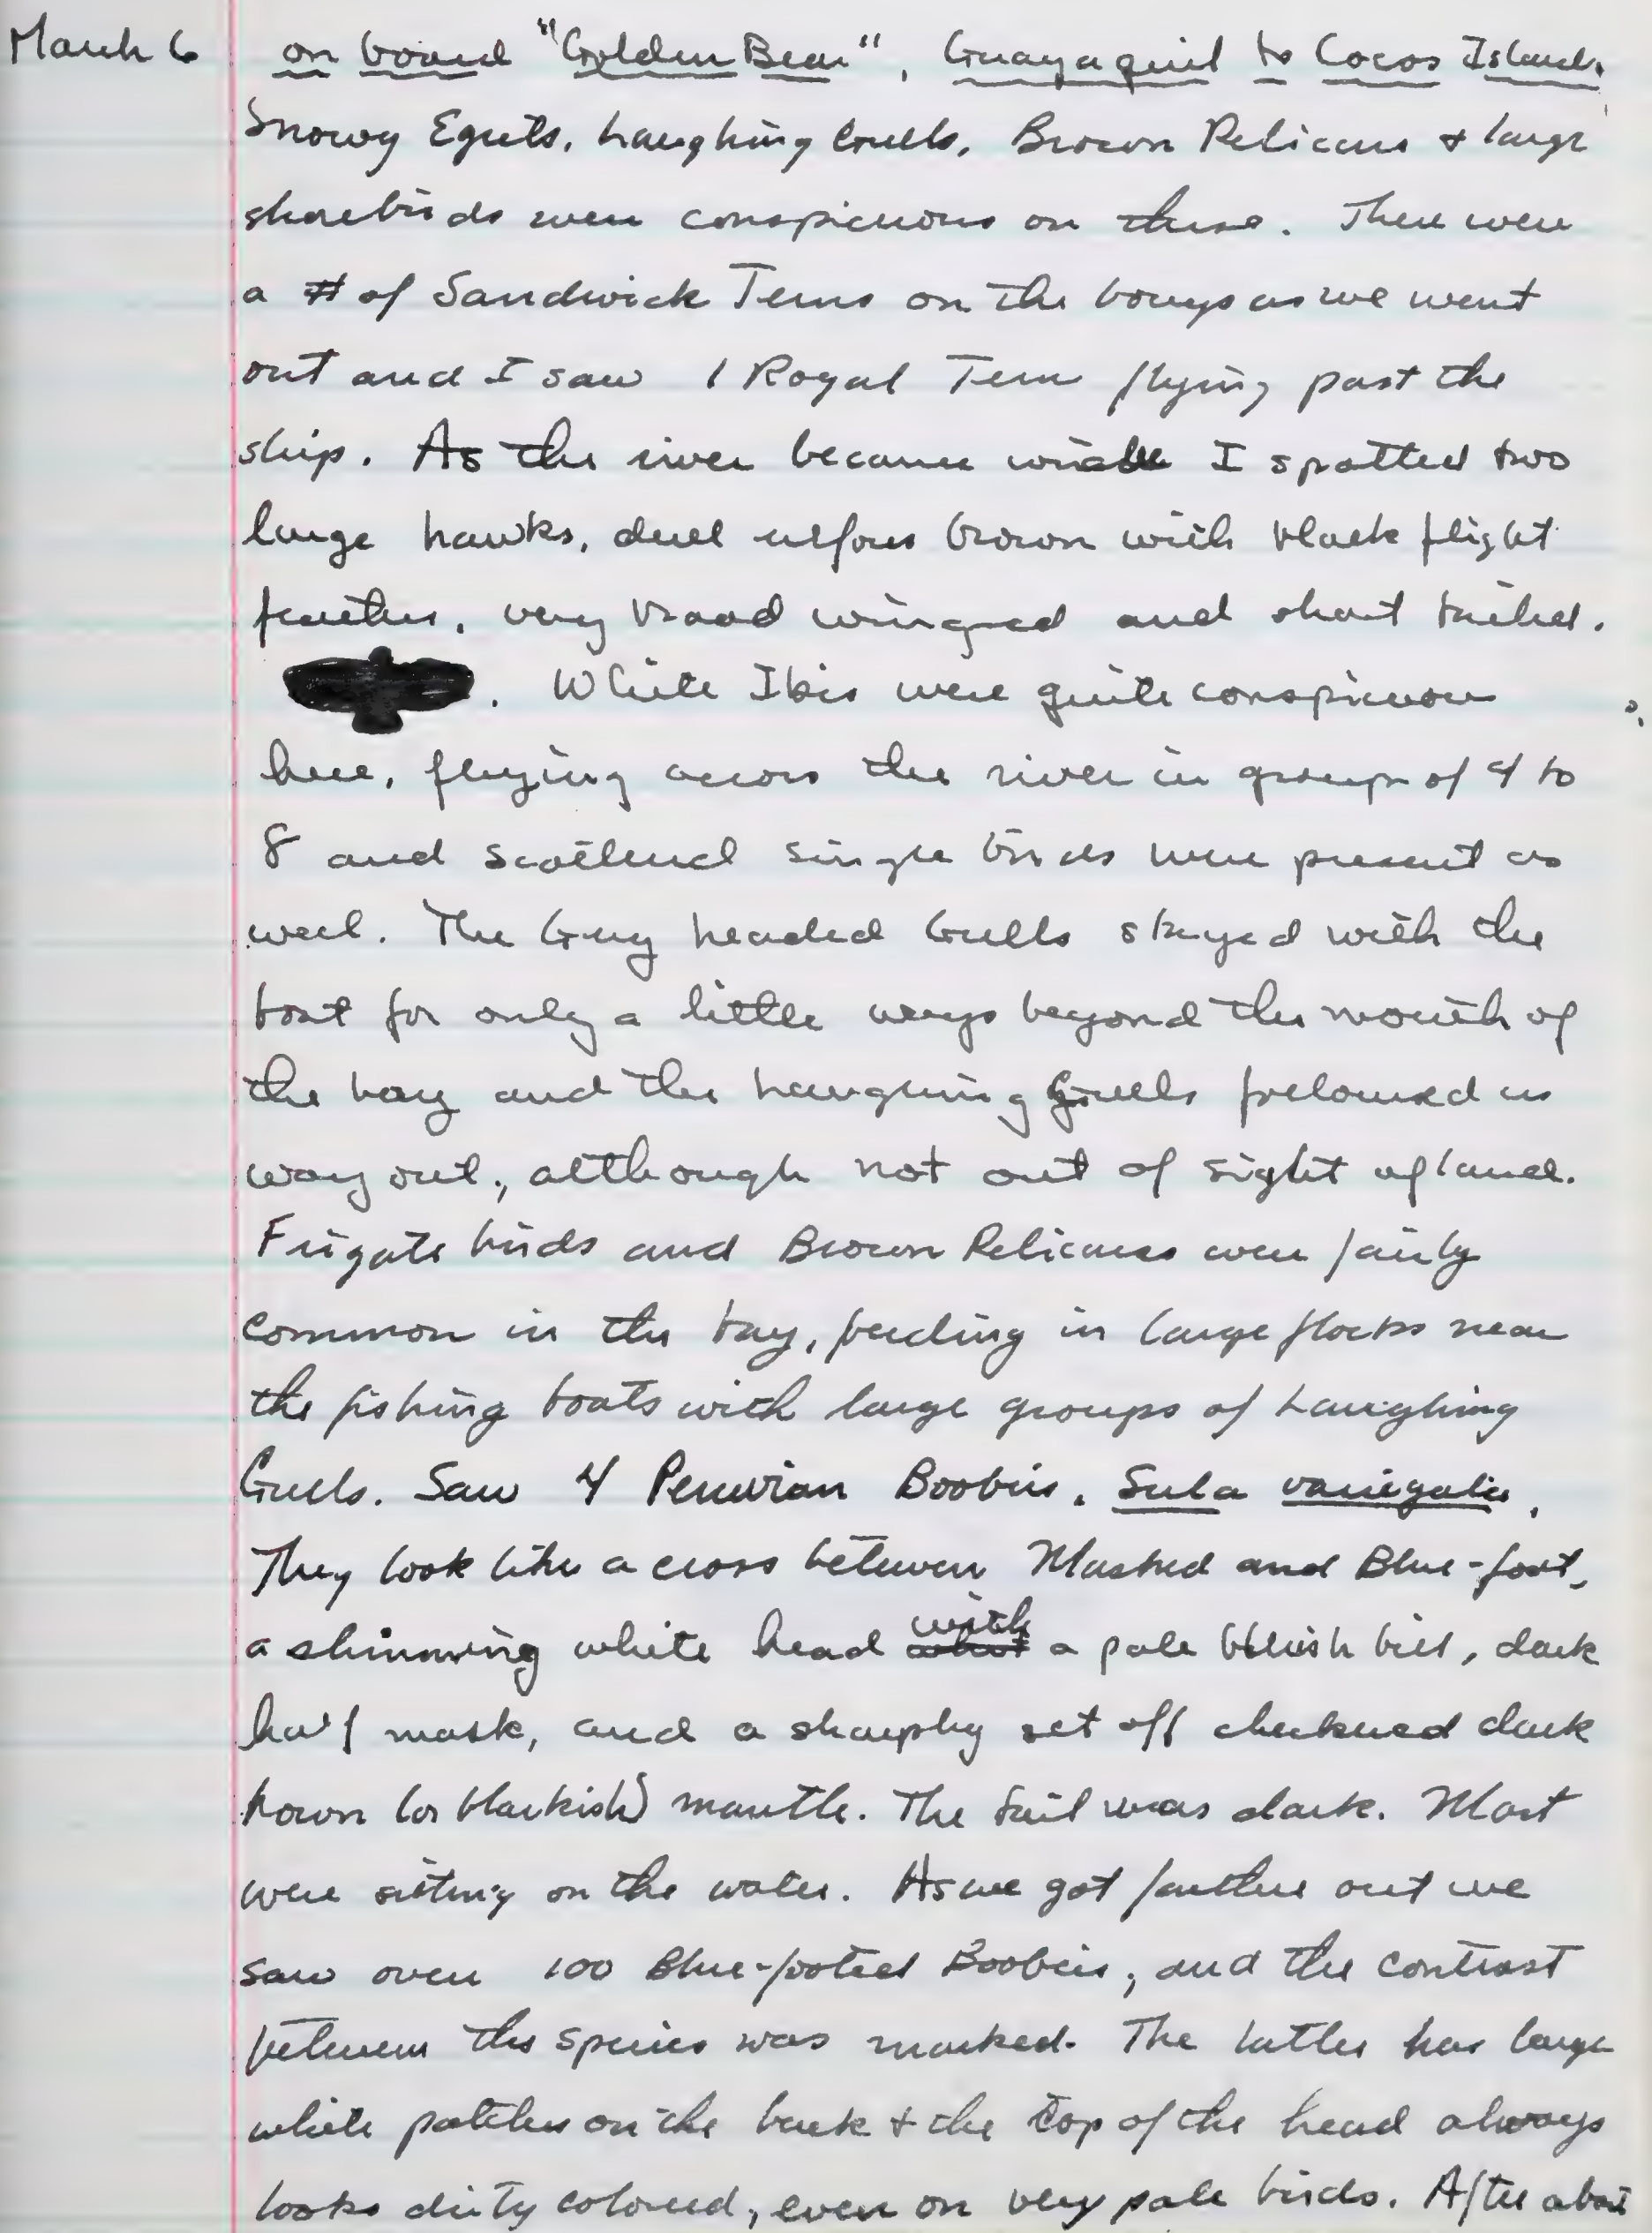 March 6 on board "Golden Bear", Guayaquil to Cocos Island.
Snowy Egrets, Laughing Gulls, Brown Pelicans & large
shorebirds were conspicuous on these. There were
a # of Sandwick Terns on the bouys as we went
out and I saw 1 Royal Tern flying past the
ship. As the river became wide I spotted two
large hawks, dull rufous brown with black flight
feathers, very broad winged and short tailed.
. White Ibis were quite conspicuous
here, flying across the river in groups of 4 to
8 and scattered single birds were present as
well. The Grey headed Gulls stayed with the
boat for only a little ways beyond the mouth of
the bay and the Laughing Gulls followed us
way out, although not out of sight of land.
Frigate birds and Brown Pelicans were fairly
common in the bay, feeding in large flocks near
the fishing boats with large groups of Laughing
Gulls. Saw 4 Peruvian Boobies, Sula variegata,
They look like a cross between Masked and Blue-foot,
a shinning white head with a pale bluish bill, dark
half mask, and a sharply set off checkered dark
brown (or blackish) mantle. The tail was dark. Most
were sitting on the water. As we got farther out we
saw over 100 Blue-footed Boobies, and the contrast
between the species was marked. The latter has large
white patches on the back & the top of the head always
looks dirty colored, even on very pale birds. After about